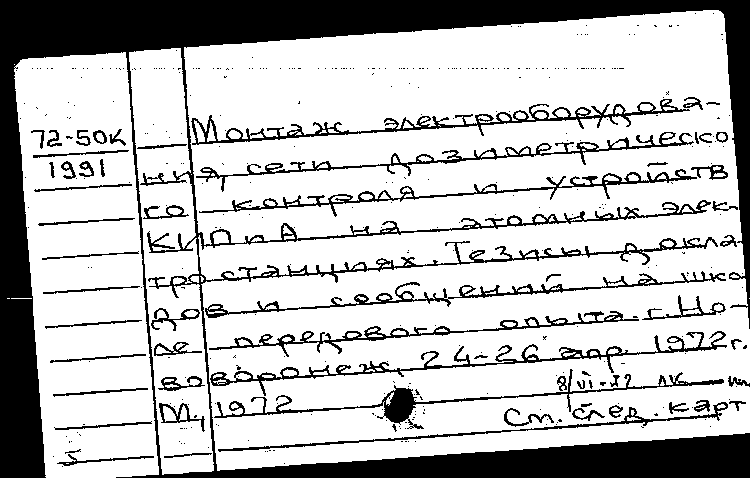 72-50к
1991
Монтаж электрооборудова-
ния, сети дозиметрическо-
го контроля и устройств
КИПиА на атомных элек-
тростанциях. Тезисы докла-
дов и сообщений на шко-
ле передового опыта. г. Но-
воворонеж, 24-26 апр. 1972г.
М., 1972
8/VI-72 ЛК
См. след. карт
5